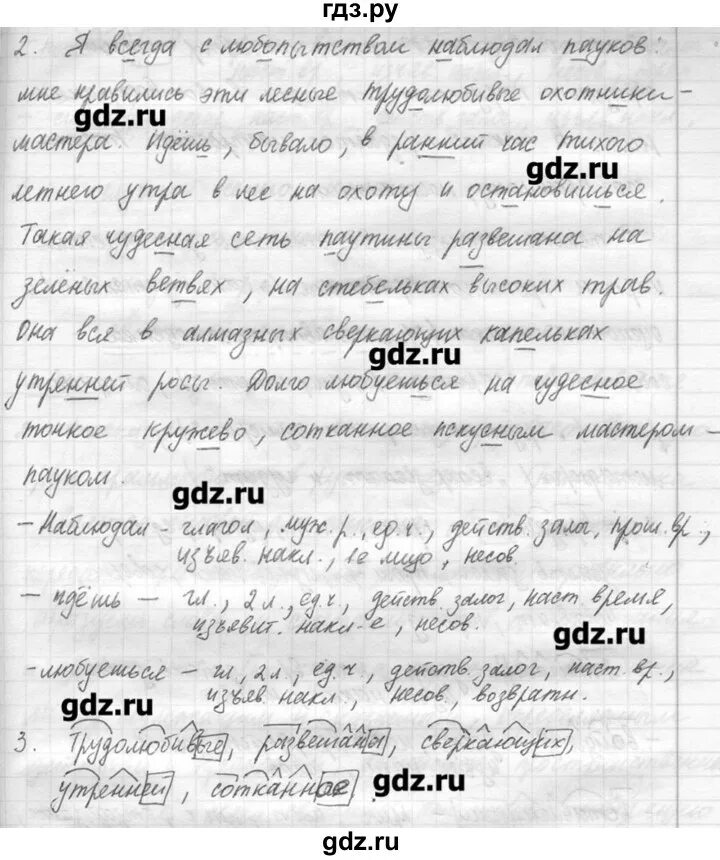 гдз.ру
2. Я всегда с любопытством наблюдал пауков:
мне нравились эти лесные трудолюбивые охотники-
gdz.ru
мастера. Идёшь, бывало, в ранний час тихого
gdz.ru
летнего утра в лес на охоту и остановишься.
Такая чудесная сеть паутины развешана на
зелёных ветвях, на стебельках высоких трав.
Она вся в алмазных сверкающих капельках
gdz.ru
утренней росы. Долго любуешься на чудесное
тонкое кружево, сотканное искусным мастером-
пауком.
gdz.ru
- Наблюдал - глагол, муж. р., ед. ч., действ. залог, прош. вр.,
изъяв. накл., 1е лицо, несов.
- идёшь - гл., 2 л., ед. ч., действ. залог, наст. время,
изъявит. накл-е, несов.
gdz.ru
- любуешься - гл., 2 л., ед. ч., действ. залог, наст. вр.,
изъяв. накл., несов., возвратн.
gdz.ru
3. Трудолюбивые, развешаны, сверкающих,
утренней, сотканное.
gdz.ru
gdz.ru